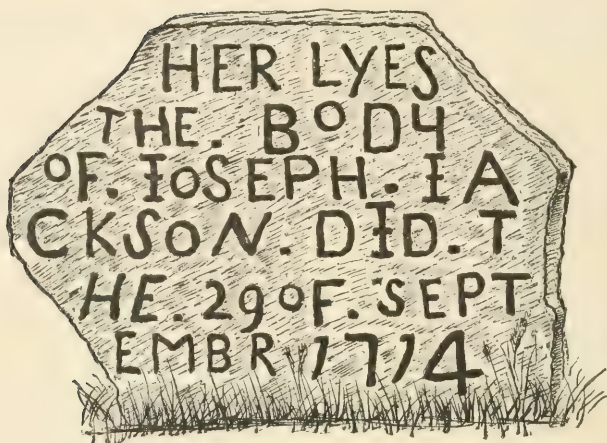 HER LYES
THE. BODY
OF. IOSEPH. IA
CKSON. DID. T
HE. 29 OF. SEPT
EMBR 1714